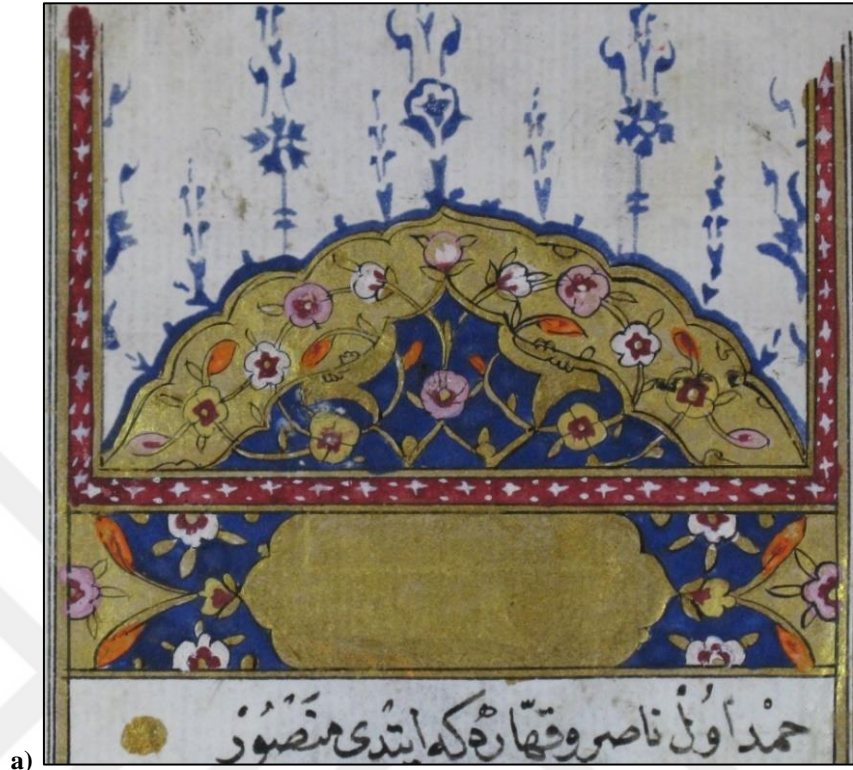 حمْد اوُلْ ناصر وقهّارَه كه ايتْدى منَصْوُرْ
a)